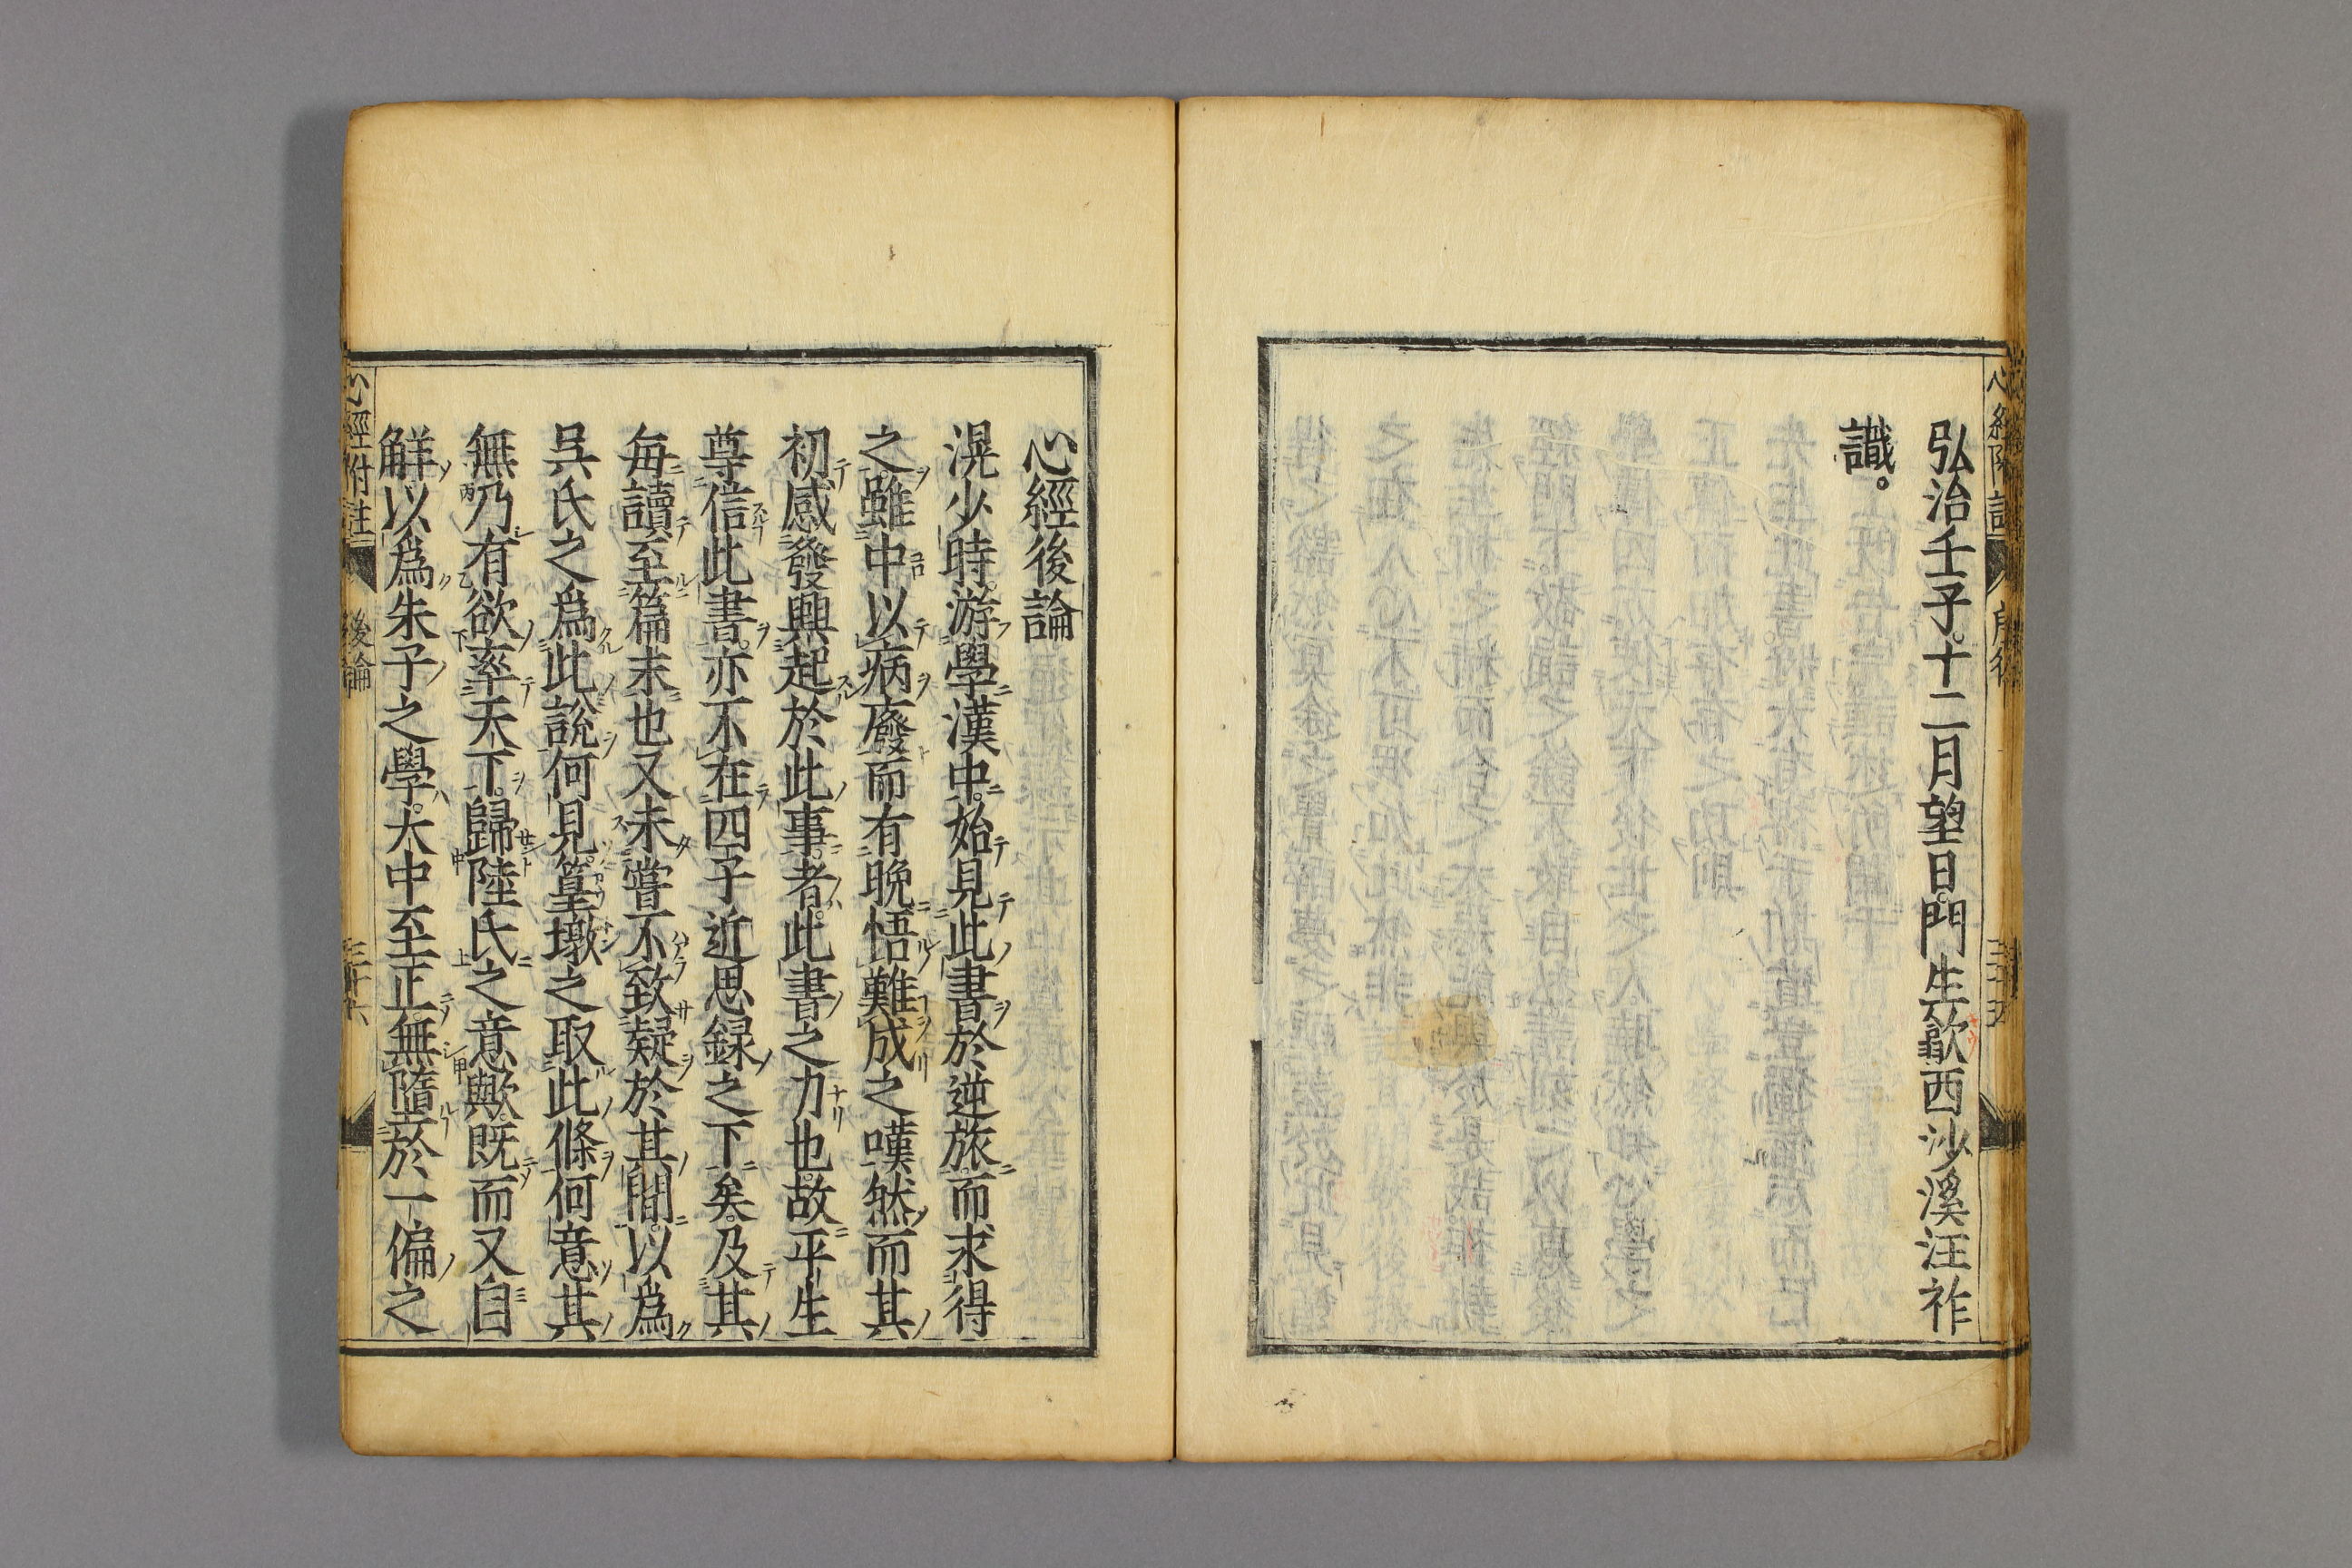 弘治壬子。十二月望日。門生歙西沙溪汪祚
識。
心經後論
滉少時。游學漢中。始見此書於逆旅。而求得
之。雖中以病廢。而有晚悟難成之嘆。然而其
初感發興起於此事者。此書之力也。故平生
尊信此書。亦不在四子近思録之下矣。及其
每讀至篇末也。又未嘗不致疑於其間。以爲
吳氏之爲此說何見。篁墩之取此條何意。其
無乃有欲率天下。歸陸氏之意歟。既而又自
觧以爲朱子之學。大中至正。無墮於一偏之
心經附註
後論
三十六